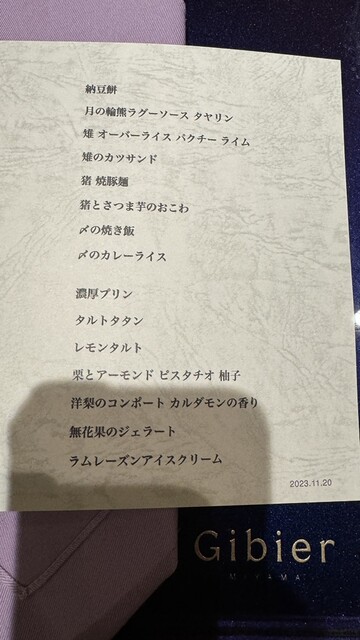 納豆餅
月の輪熊ラグーソース タヤリン
雉 オーバーライス パクチー ライム
雉のカツサンド
猪 焼豚麺
猪とさつま芋のおこわ
〆の焼き飯
〆のカレーライス
濃厚プリン
タルトタタン
レモンタルト
栗とアーモンド ピスタチオ 柚子
洋梨のコンポート カルダモンの香り
無花果のジェラート
ラムレーズンアイスクリーム
2023.11.20
Gibier
MIYAMA